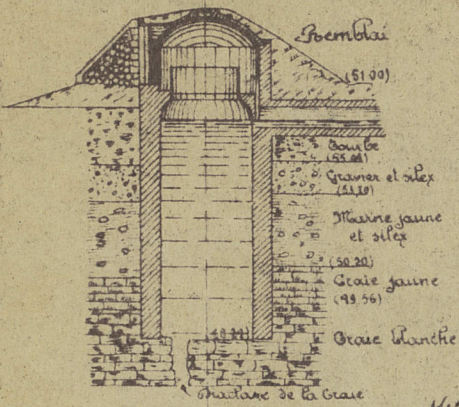 Remblai
(51.00)
Tourbe
Gravier et silex
Marne jaune
et silex
(50.20)
Craie jaune
(49.56)
Craie blanche
de la Craie